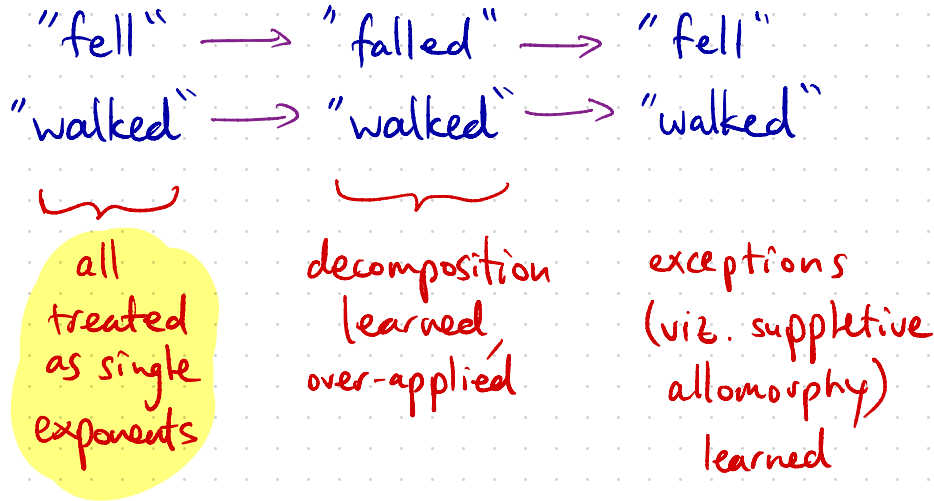 "fell" → "falled" → "fell"
"walked" → "walked" → "walked"
all
treated
as single
exponents
decomposition
learned,
over-applied
exceptions
(viz. suppletive
allomorphy)
learned